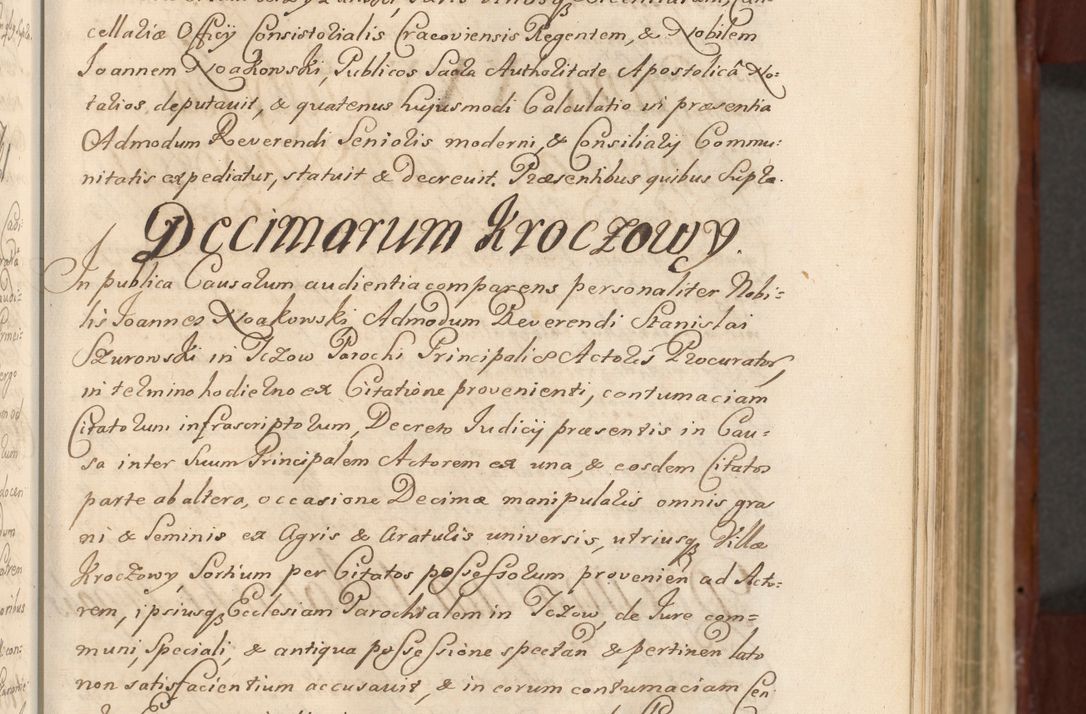 cellariæ Officÿ Consistorialis Cracoviensis Regentem, & Nobilem
Joannem Noakowski, Publicos Sacra Authoritate Apostolicâ No:
tarios, deputavit, & quatenus hujusmodi Calculatio vi præsentia
Admodum Reverendi Senioris moderni, & Consiliarÿ Commu:
nitatis expediatur, statuit & decrevit. Præsentibus quibus supra.
Decimarum Kroczowy.
In publica Causarum audientia comparens personaliter Nobi=
lis Joannes Noakowski, Admodum Reverendi Stanislai
Szurowski in Tczow Parochi Principalis Actoris Procurator,
in termino hodierno ex Citatione provenienti, contumaciam
Citatorum infrascriptorum, Decreto Judicÿ præsentis in Cau=
sa inter suum Principalem Actorem ex una, & eosdem Citatos
parte ab altera, occasione Decimæ manipularis omnis gra
ni & Seminis ex Agris & araturis universis, utriusq Villæ
Kroczowy, Sortium per Citatos possessorum provenien ad Acto:
rem, ipsiusq Ecclesiam Parochialem in Tczow, de Jure com=
muni, speciali, & antiqua possessione spectan & pertinen lato
non satisfacientium accusavit, & in eorum contumaciam Sen